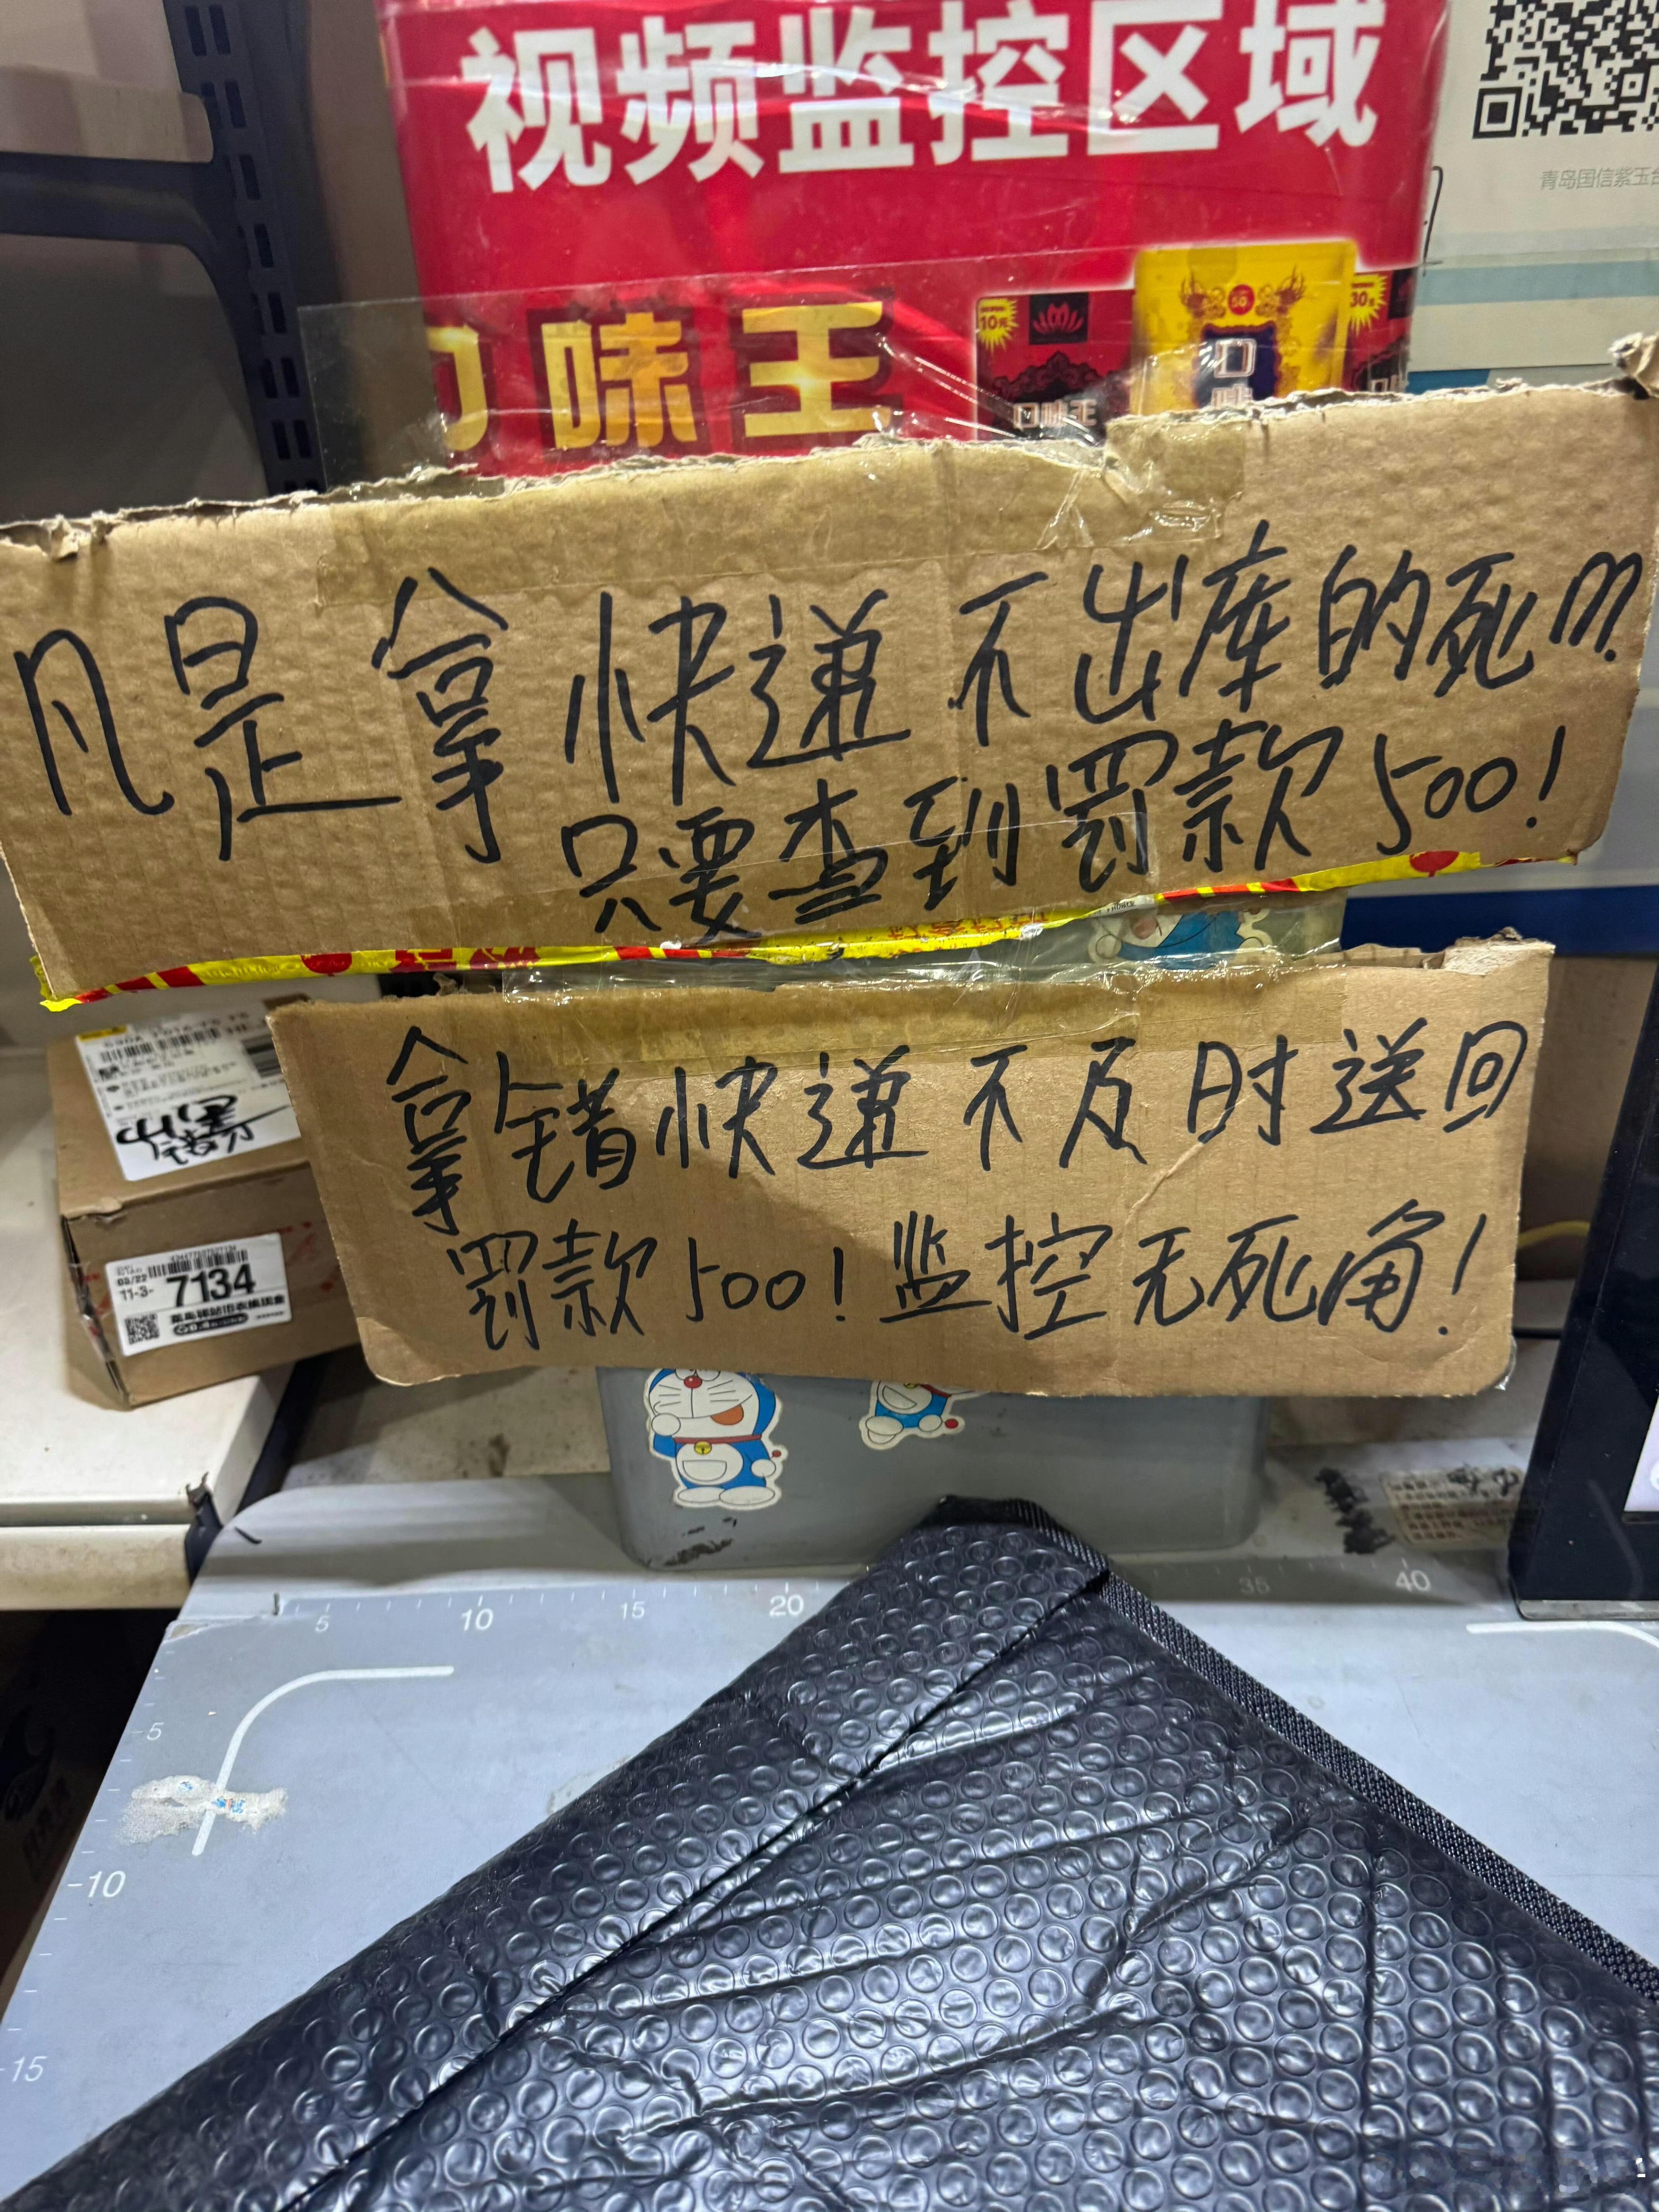 视频监控区域
青岛国信紫玉台
口味王
10元
30元
50
口味王
口味
凡是拿快递不出库的死??
只要查到罚款500!
拿错快递不及时送回
罚款500!监控无死角!
03/22
11-3-
7134
5
10
15
20
35
40
5
10
15